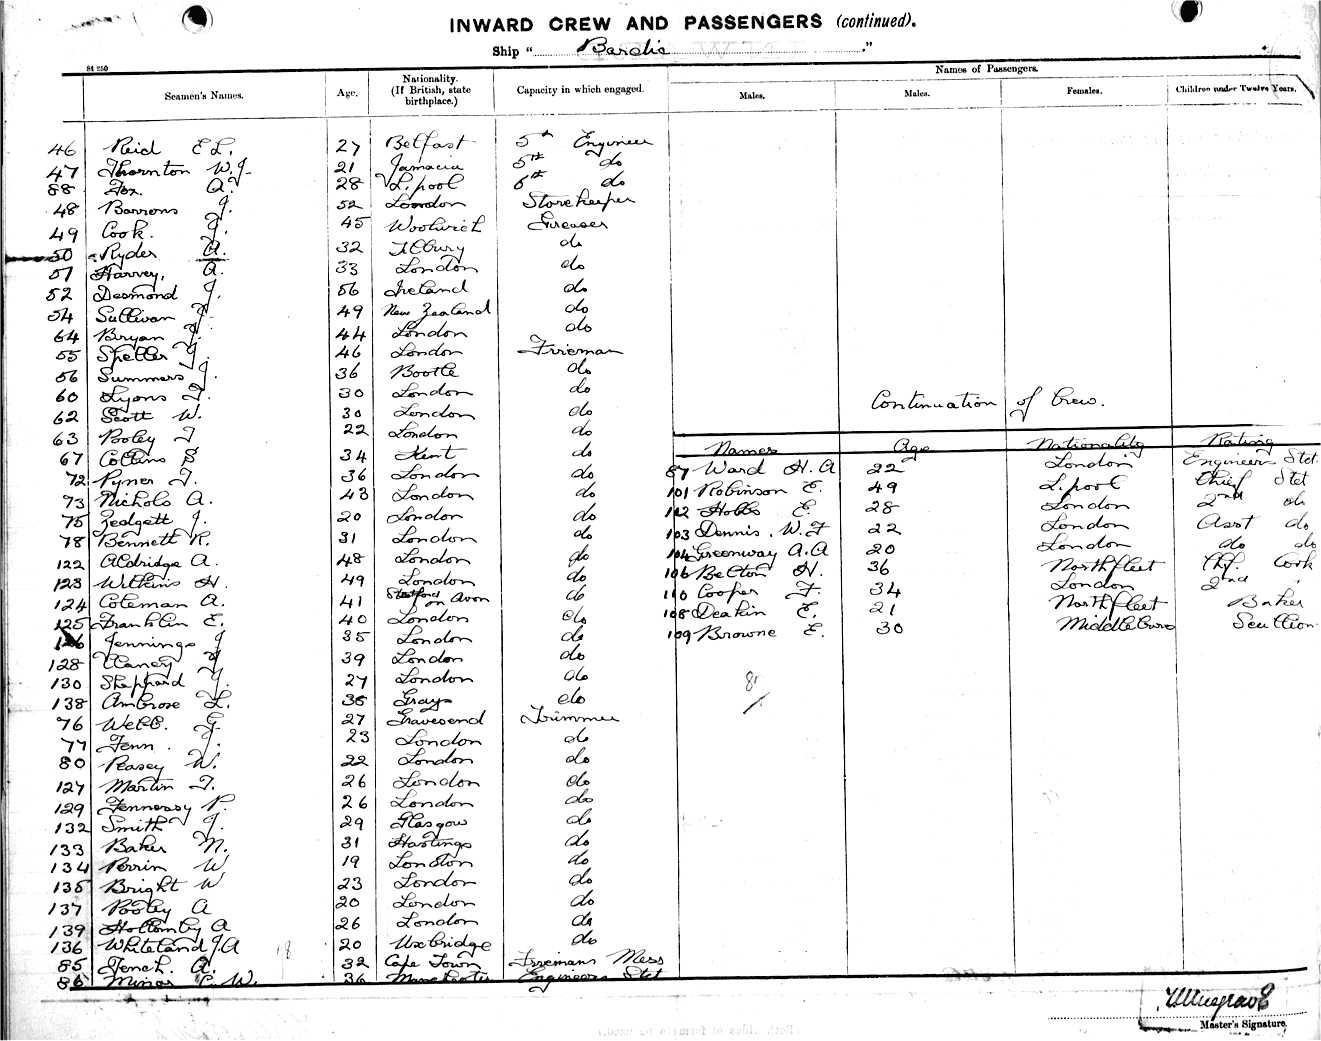 INWARD CREW AND PASSENGERS (continued).
Ship " Bardic ."
84 250
Seamen's Names. Age. Nationality. (If British, state birthplace.) Capacity in which engaged. Names of Passengers.
Males. Males. Females. Children under Twelve Years.
46 Reid E L. 27 Belfast 5th Engineer
47 Thornton W. J. 21 Jamacia 5th do
88 Fox. A. 28 L. pool 6th do
48 Barrons J. 52 London Storekeeper
49 Cook. J. 45 Woolwich Greaser
50 Ryder A. 32 Tilbury do
51 Harvey, A. 33 London do
52 Desmond J. 56 Ireland do
54 Sullivan 49 New Zealand do
64 Bryan 44 London do
55 Speller J. 46 London Fireman
56 Summers J. 36 Bootle do
60 Lyons T. 30 London do
62 Scott W. 30 London do
63 Pooley T 22 London do
67 Collins 34 Kent do
72 Pyner T. 36 London do
73 Nichols A. 43 London do
75 Zedgett J. 20 London do
78 Bennett R. 31 London do
122 Aldridge A. 48 London do
123 Wilkins H. 49 London do
124 Coleman A. 41 Stratford on Avon do
125 Franklin E. 40 London do
126 Jennings J 35 London do
128 Clancy 39 London do
130 Shephard 27 London do
138 Ambrose L. 36 Grays do
76 Webb. G. 27 Gravesend Trimmer
77 Fenn. J. 23 London do
80 Peasey W. 22 London do
127 Martin T. 26 London do
129 Fennessy P. 26 London do
132 Smith J. 29 Glasgow do
133 Baker M. 31 Hastings do
134 Perrin W 19 London do
135 Bright W 23 London do
137 Pooley A 20 London do
139 Hollamby A 26 London do
136 Whiteland J. A 20 Uxbridge do
85 Fench. A. 32 Cape Town Firemans Mess
86 Minor C. W. 36 Manchester Engineers Std
Continuation of Crew.
Names Age Nationality Rating
87 Ward H. A 22 London Engineers Std.
101 Robinson E. 49 L. pool Chief Std
102 Hobbs E. 28 London 2nd do
103 Dennis. W. F 22 London Asst do
104 Greenway A. A 20 London do do
106 Belton H. 36 Northfleet Chf. Cook
110 Cooper F. 34 London 2nd "
108 Deakin E. 21 Northfleet Baker
109 Browne E. 30 Middlebro Scullion
81
Master's Signature.